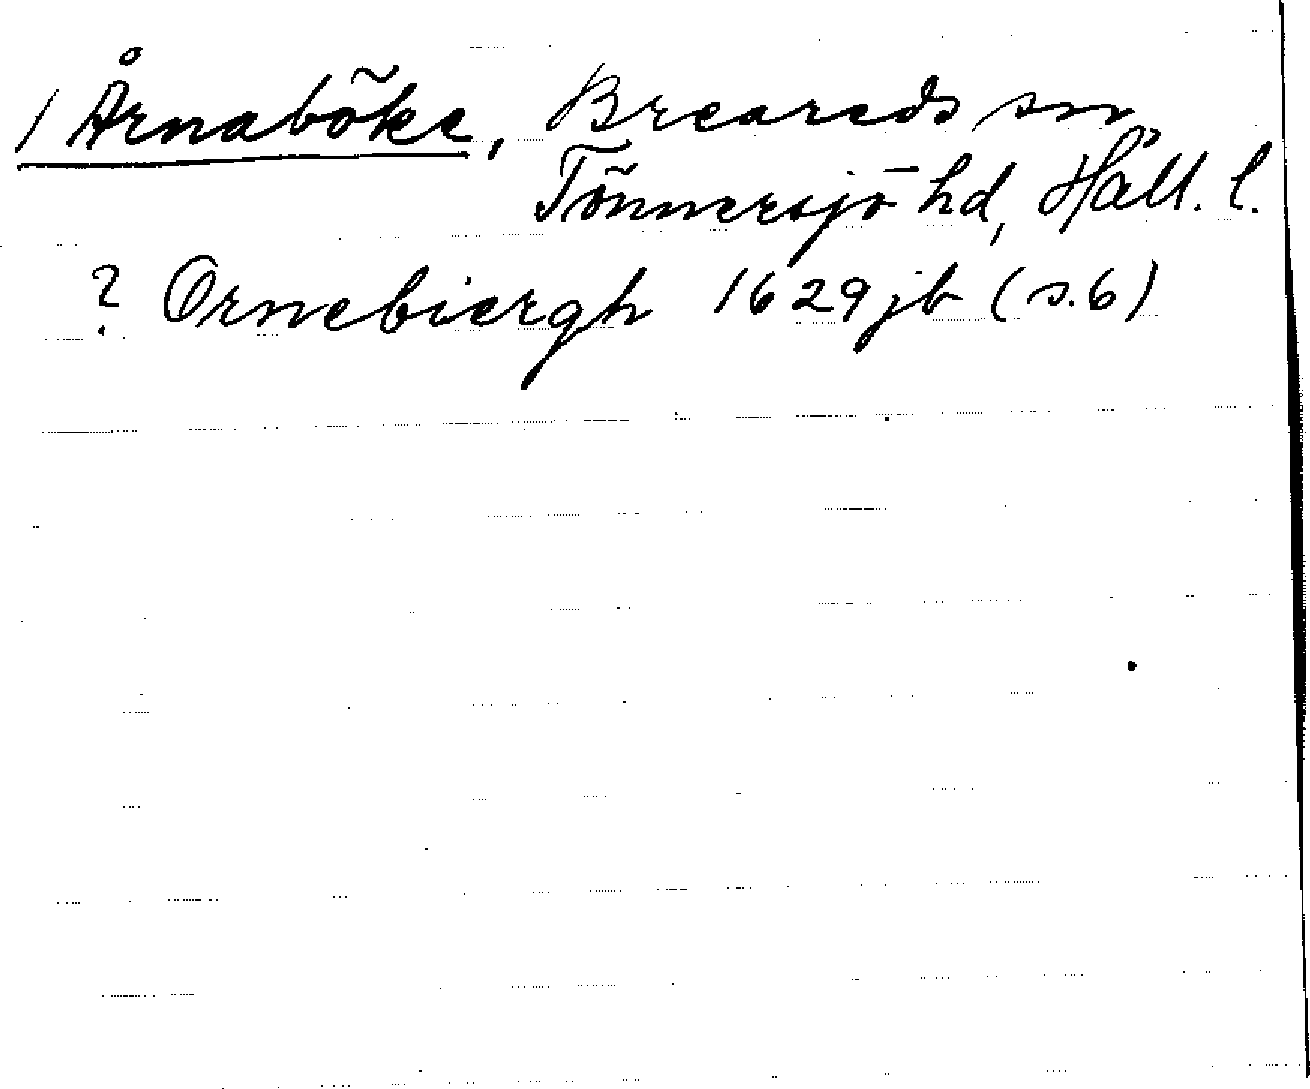 / Årnaböke, Breareds sn,
Tönnersjö hd, Hall. l.
? Ornebiergh 1629 jb (s. 6)